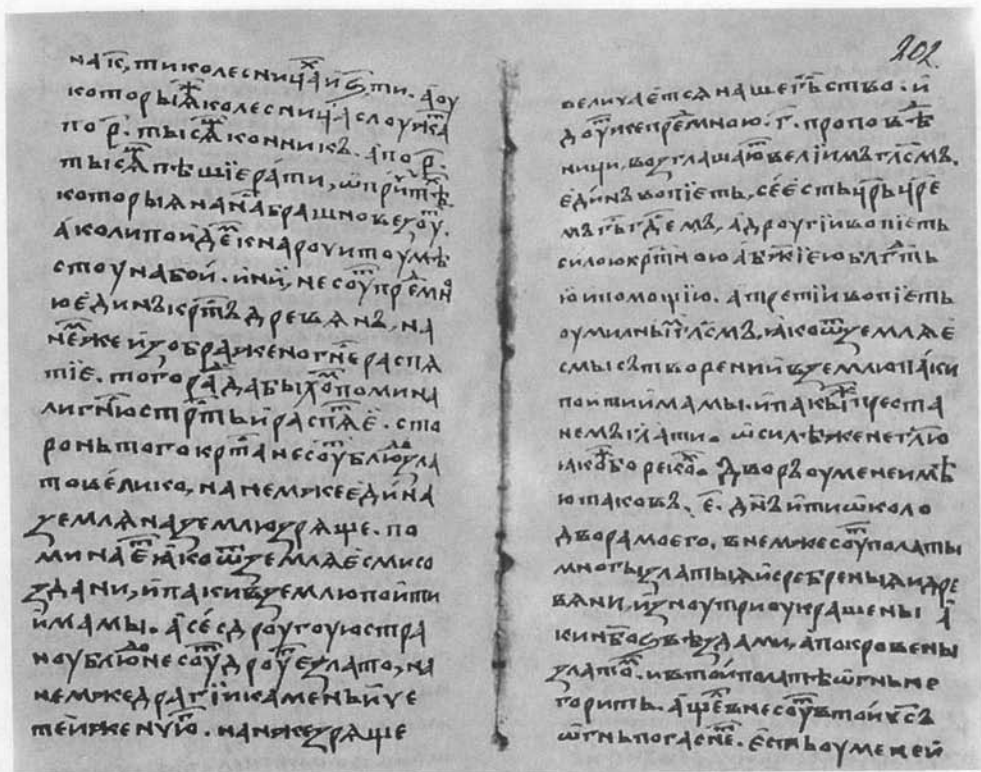 на к҃, ти колесницаⷯ и ѕ҃ ти. а оу
которыѧⷤ колесница слоужⷶ
по р҃. тысѧⷱ конникъ. а по р҃.
тысѧⷱ пѣшцїе рати, ѿприⷱтⷩѣ.
которыѧ на на брашно веꙁоуⷮ.
а коли поидеⷨ к нарои тоу мѣ
стоу на бой. инїи, несоуⷮ преⷣмнⷪ
ю единъ крⷭтъ древѧнъ, на
неⷨже иꙁображено гнⷭ҇е распѧ
тїе. того раⷣ да быхоⷨ помина
ли гн҃ю стрⷭть и распѧтⷭе. с то
ронь того крⷭта несоуⷮ блюⷣ ꙁла
то велико, на немже едина
ꙁемлѧ на ꙁемлю ꙁрѧще. по
минаеⷨ ꙗко ѿ ꙁемлѧ есми со
ꙁдани, и паки в ꙁемлю пойти
имамы. а се с дроугоую стра
ноу блюⷣ несоуⷮ дроуⷢ҇е ꙁлато, на
немже драгїи камень и че
теи женчюⷢ. на нже ꙁрѧще
202.
величаетсѧ наше гⷭ҇ьство. и
доуⷮ же преⷣмною. г҃. проповѣⷣ
ници. воꙁглашаюⷮ велїимъ глⷭ҇мъ.
единъ вопїеть, се есть цр҃ь цр҃е
мъ гь гⷭ҇демъ, а дроугїи вопїеть
силою крⷭтною а бж҃їею блг҃ть
ю и помощїю. а третїи вопїеть
оумилныⷨ глⷭ҇мъ, ꙗко ѿ ꙁемлѧ е
смы сътворени и въ ꙁемлю паки
пойти имамы. и пакыⷤ преста
немъ гл҃ати. ѿ силѣ же не гл҃ю
ꙗкоⷤ бо рекоⷯ. дворъ оу мене имѣ
ю таковъ. е҃. дн҃ъ ити ѡколо
двора моего. в немже соуⷮ полаты
многы ꙁлатыѧ и сребреныѧ и дре
вѧни, иꙁноутри оукрашены а
ки нб҃о ѕвѣꙁдами, а покровены
ꙁлатоⷨ. и в той полатѣ ѡгнь не
горить. аще внесоуⷮ в той чⷭ҇ъ
ѡгнь погаснеⷮ. есть оу мене и